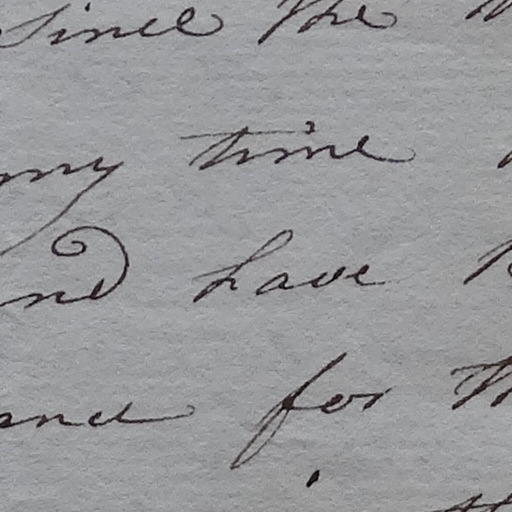 Since the
my time
and have
and for